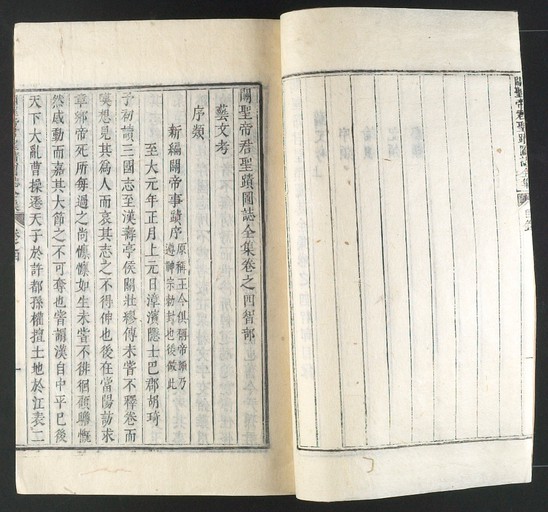 關聖帝君聖蹟圖誌全集卷之四智部
藝文考
序類
新編關帝事蹟序原稱王今俱稱帝蹟乃遵神宗勅封也後倣此
至大元年正月上元日漳濱隱士巴郡胡琦
予初讀三國志至漢壽亭侯關壯繆傳未嘗不釋卷而
嘆想見其為人而哀其志之不得伸也後在當陽訪求
章鄉帝死所每過之尚懔懔如生未嘗不徘徊顧瞻慨
然感動而嘉其大節之不可奪也嘗謂漢自中平已後
天下大亂曹操遷天子於許都孫權擅土地於江表二
關聖帝君聖蹟圖誌全集